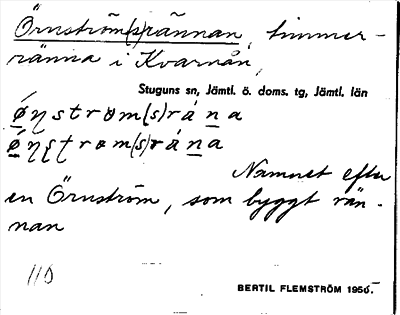 Örnström(s)rännan, timmer-
ränna i Kvarnån,
Stuguns sn, Jämtl. ö. doms. tg, Jämtl. län
ǿŋstrɷm(s)ráṉa
ǿŋʂʈrɷm(s)ráṉa
Namnet efter
en Örnström, som byggt rän-
nan
110
BERTIL FLEMSTRÖM 1956.